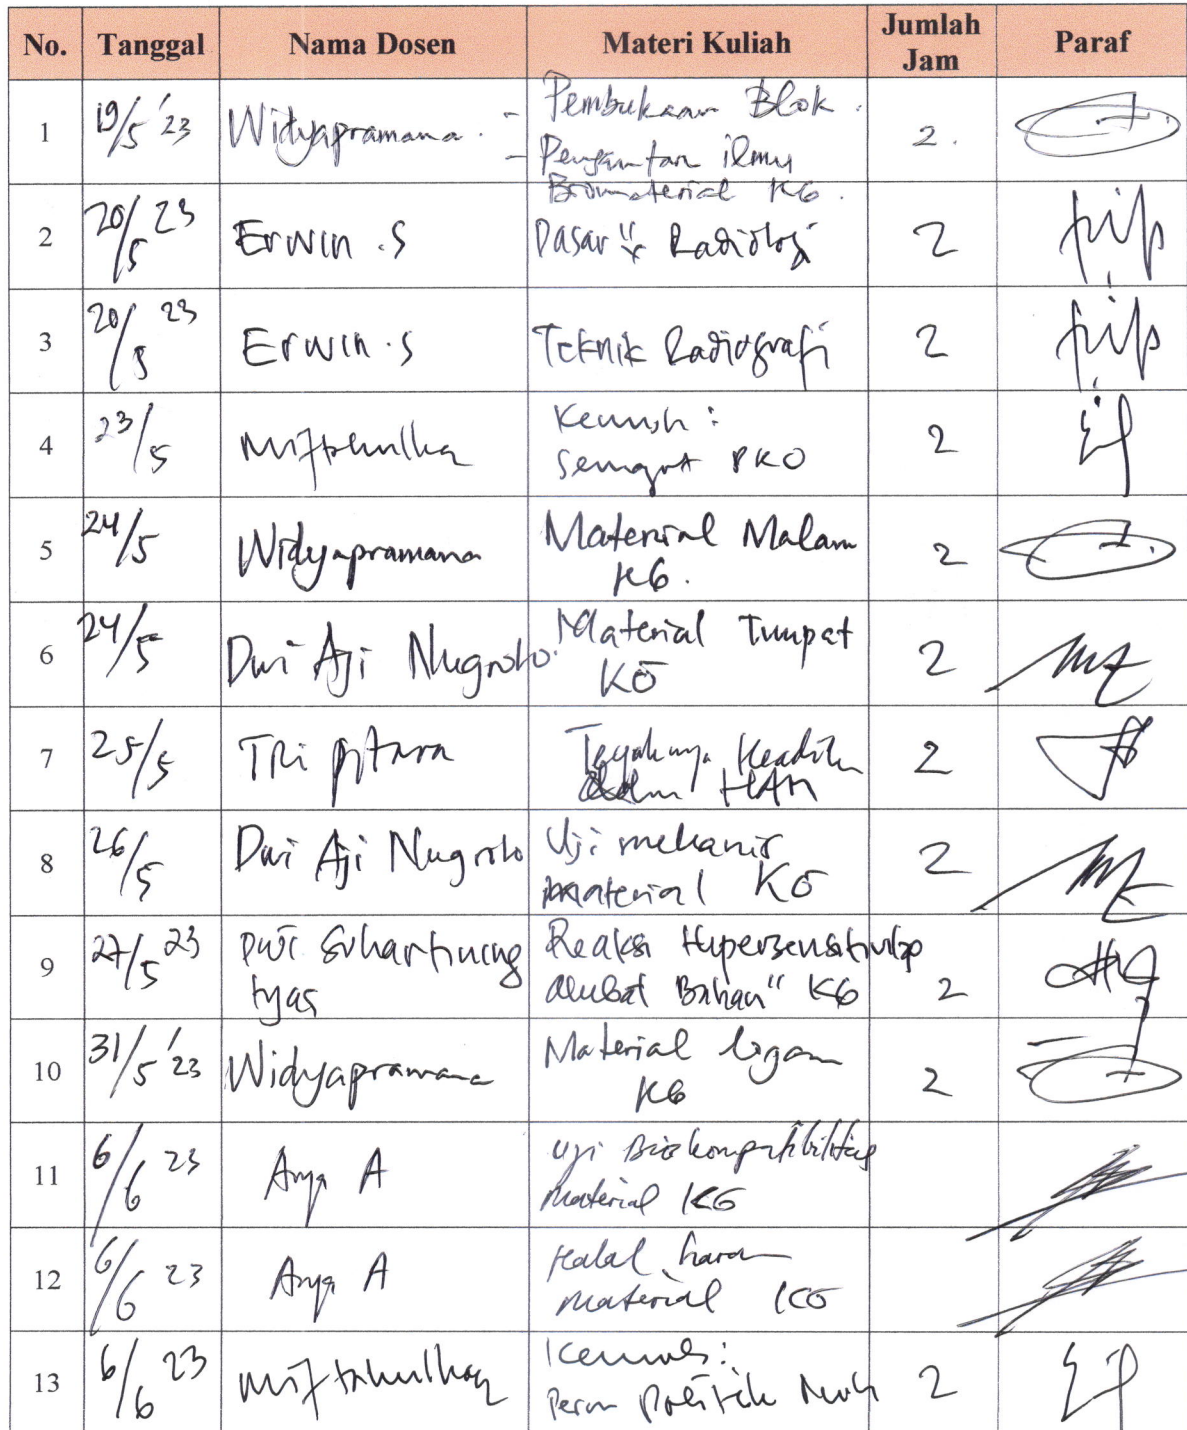 No. Tanggal Nama Dosen Materi Kuliah Jumlah Jam Paraf
1 19/5 '23 Widyapramana. - Pembukaan Blok.
- Pengantar ilmu
Biomaterial KG.
2.
2 20/5 23 Erwin.S Dasar" Radiologi 2
3 20/5 23 Erwin.S Teknik Radiografi 2
4 23/5 Miftahulhaq Kemuh:
PKO
2
5 24/5 Widyapramana Material Malam
KG.
2
6 24/5 Dwi Aji Nugroho. Material Tumpat
KG
2
7 25/5 TRi Tegaknya Keadilan
HAM
2
8 26/5 Dwi Aji Nugroho Uji mekanis
material KG
2
9 27/5 23 Suhartining
tyas
Reaksi Hipersensitivitas
akibat Bahan" KG
2
10 31/5 '23 Widyapramana Material logam
KG
2
11 6/6 23 Arya A Uji Biokompatibilitas
Material KG
12 6/6 23 Arya A Halal haram
material KG
13 6/6 23 Miftahulhaq Kemuh:
Peran Politik Muh
2